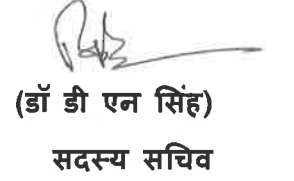 (डॉ डी एन सिंह)
सदस्य सचिव